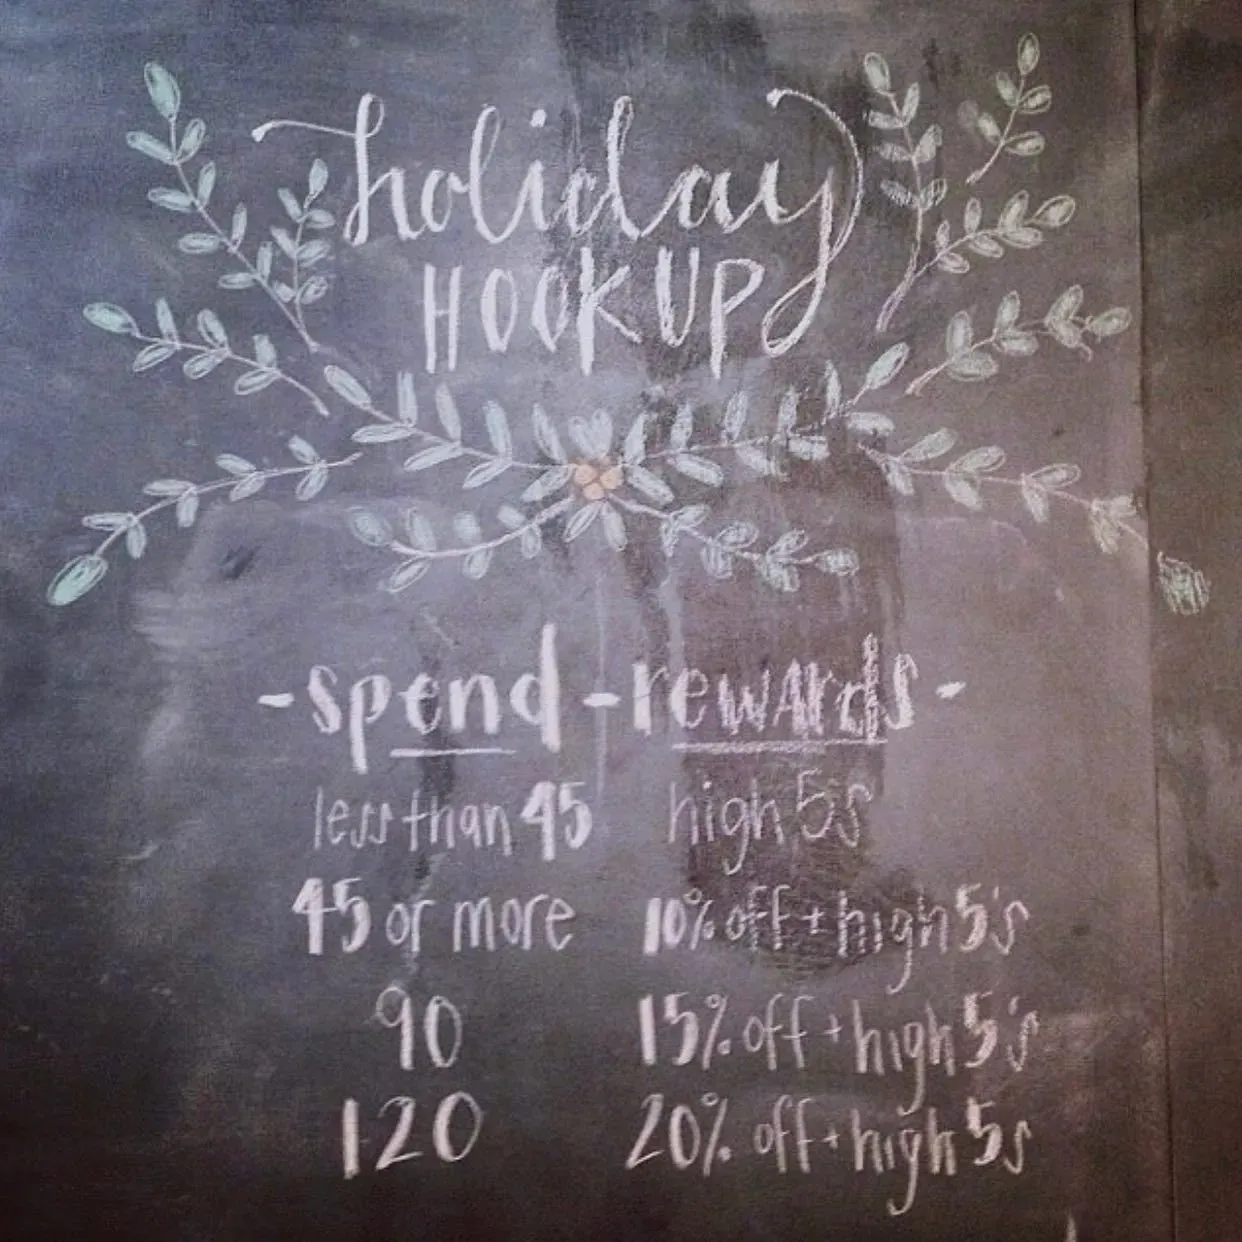 holiday
HOOKUP
-spend-rewards-
less than 45 high 5's
45 or more 10% off + high 5's
90 15% off + high 5's
120 20% off + high 5s